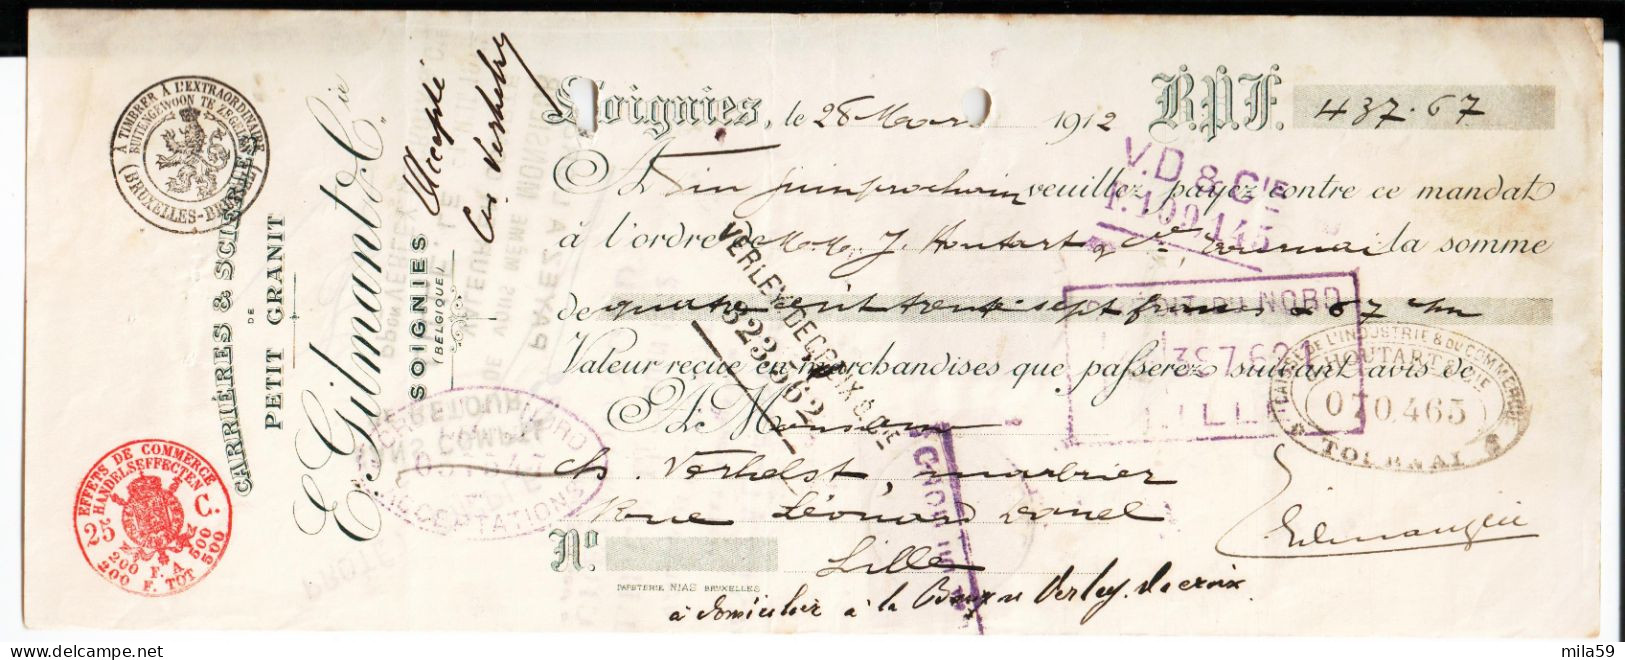 Soignies, le 28 Mars 1912 B.P.F. 437.67
A fin juin prochain veuillez payez contre ce mandat
à l'ordre de M.M. J. Houtart & Cie Tournai la somme
de quatre cent trente sept francs 67 cm
Valeur reçue en marchandises que passerez suivant avis de
A Monsieur
Ch. Verhelst, marbrier
Rue Léonard Danel
Lille
No.
PAPETERIE NIAS BRUXELLES
à domicilier à la Banque Verley. Decroix
E. Gilmant & Cie
Accepté
Ch. Verhelst
CARRIÈRES & SCIERIES
DE
PETIT GRANIT
E. Gilmant & Cie
SOIGNIES
(BELGIQUE)
À TIMBRER À L'EXTRAORDINAIRE
BUITENGEWOON TE ZEGELEN
(BRUXELLES-BRUSSEL)
EFFETS DE COMMERCE
HANDELSEFFECTEN
25 C.
200 F. A 500
200 F. TOT 500
V.D & CIE
1.109.145
VERLEY DECROIX & CIE
323.562
DU NORD
LILLE
DE L'INDUSTRIE & DU COMMERCE
HOUTART & CIE
070.465
TOURNAI
ACCEPTATIONS
mila59